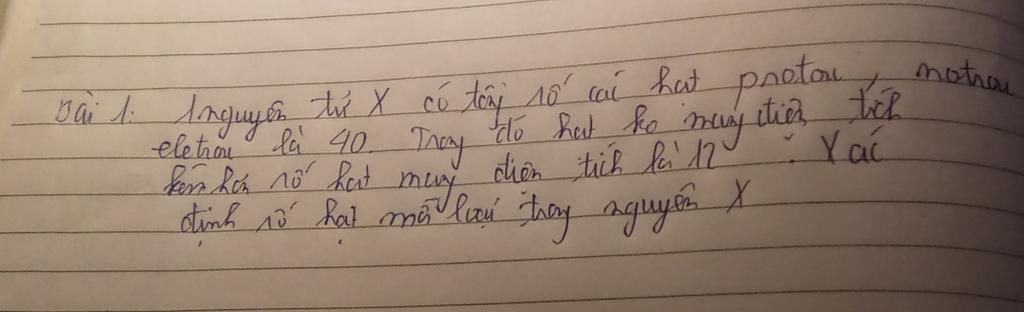 Bài 1: 1 nguyên tử X có tổng số các hạt proton, notron
eletron là 40. Trong đó hạt ko mang điện tích
kém hơn số hạt mang điện tích là 12. Xác
định số hạt mỗi loại trong nguyên X